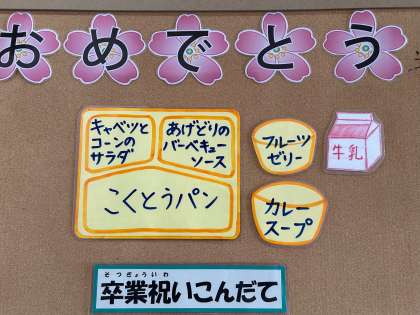 おめでとう
キャベツと
コーンの
サラダ
あげどりの
バーベキュー
ソース
フルーツ
ゼリー
牛乳
こくとうパン
カレー
スープ
そつぎょういわ
卒業祝いこんだて